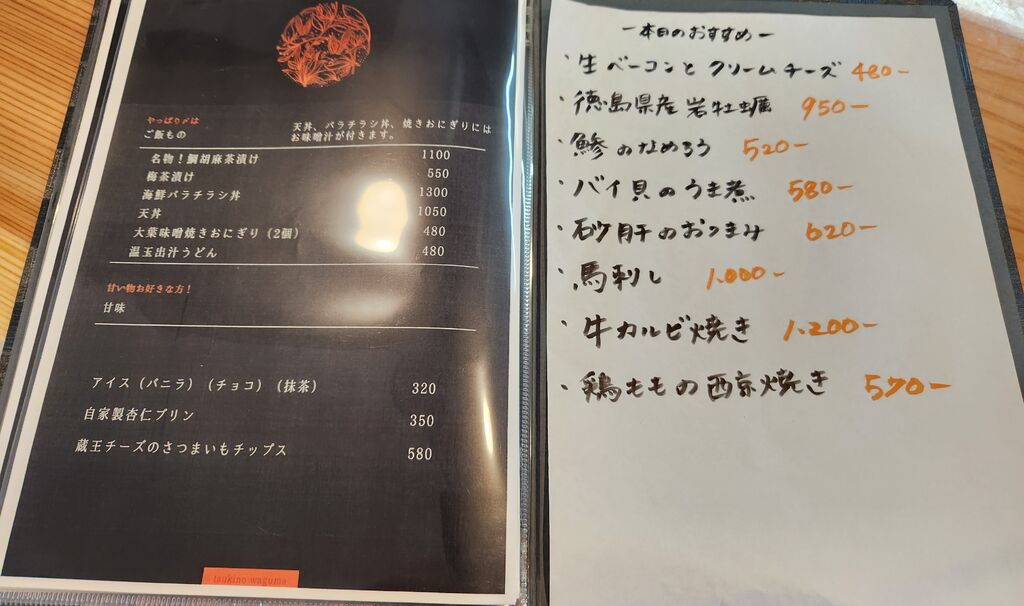 やっぱり〆は
ご飯もの
天丼、バラチラシ丼、焼きおにぎりには
お味噌汁が付きます。
名物！鯛胡麻茶漬け 1100
梅茶漬け 550
海鮮バラチラシ丼 1300
天丼 1050
大葉味噌焼きおにぎり（2個） 480
温玉出汁うどん 480
甘い物お好きな方！
甘味
アイス（バニラ）（チョコ）（抹茶） 320
自家製杏仁プリン 350
蔵王チーズのさつまいもチップス 580
tsukino waguma
ー本日のおすすめー
・生ベーコンとクリームチーズ 480-
・徳島県産岩牡蠣 950-
・鯵のなめろう 520-
・バイ貝のうま煮 580-
・砂肝のおつまみ 620-
・馬刺し 1.000-
・牛カルビ焼き 1.200-
・鶏ももの西京焼き 570-